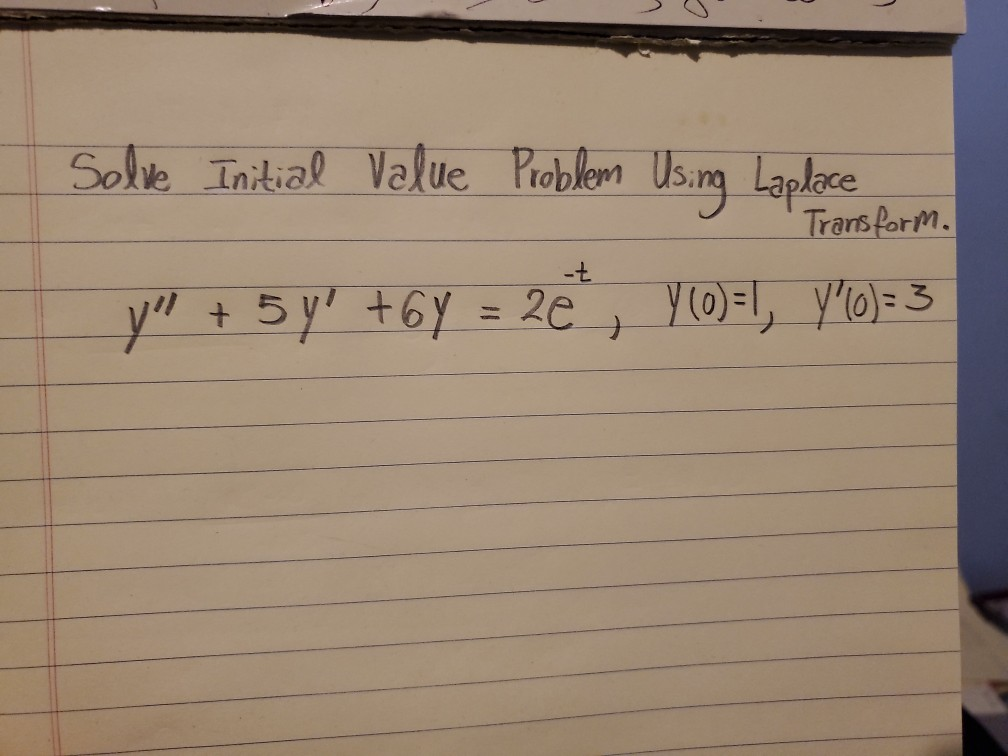 Solve Initial Value Problem Using Laplace
Transform.
y'' + 5y' + 6y = 2e^-t, y(0)=1, y'(0)=3